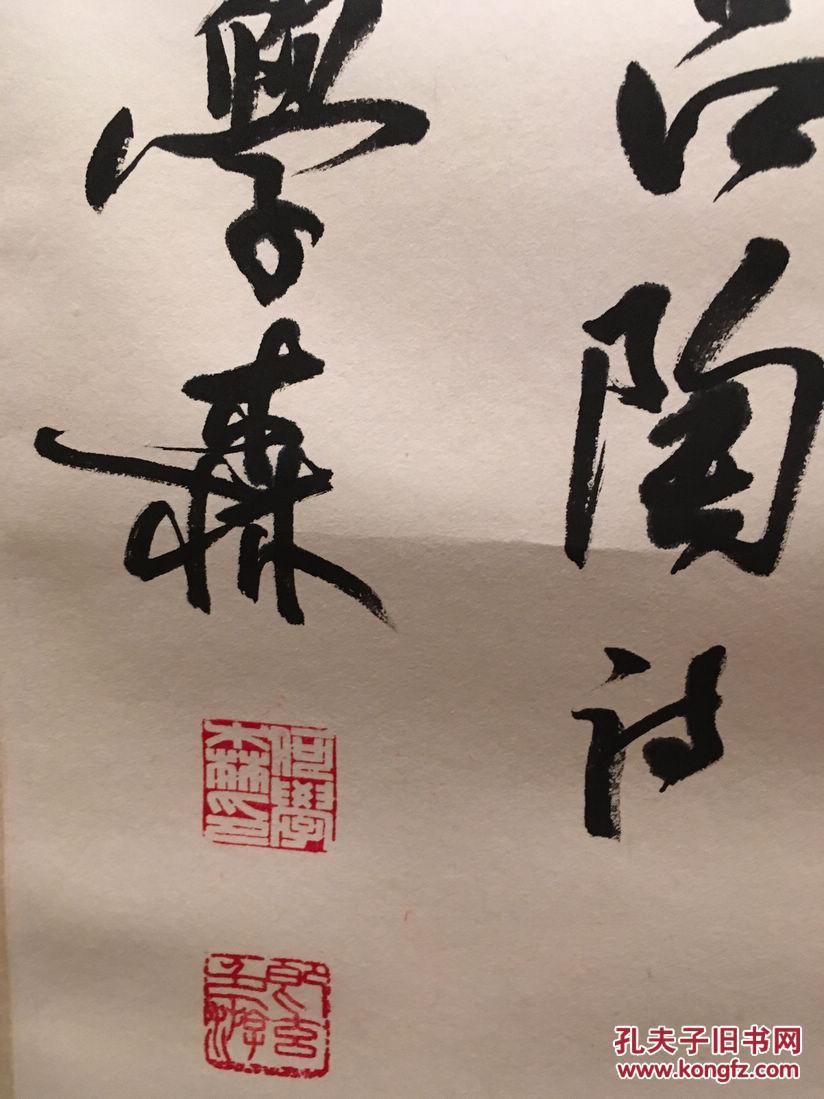 陶詩
學森
何學森印
孔夫子旧书网
www.kongfz.com